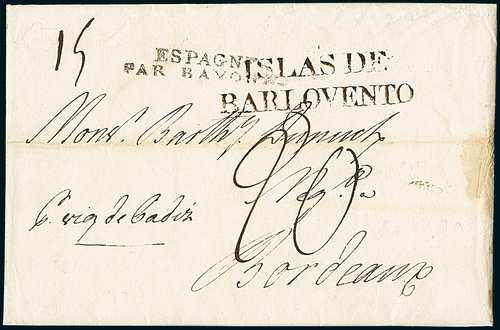 15
ESPAGNE
PAR BAYONNE
ISLAS DE
BARLOVENTO
Monsr. Barthy.
20
Bordeaux
pr. via de Cadiz